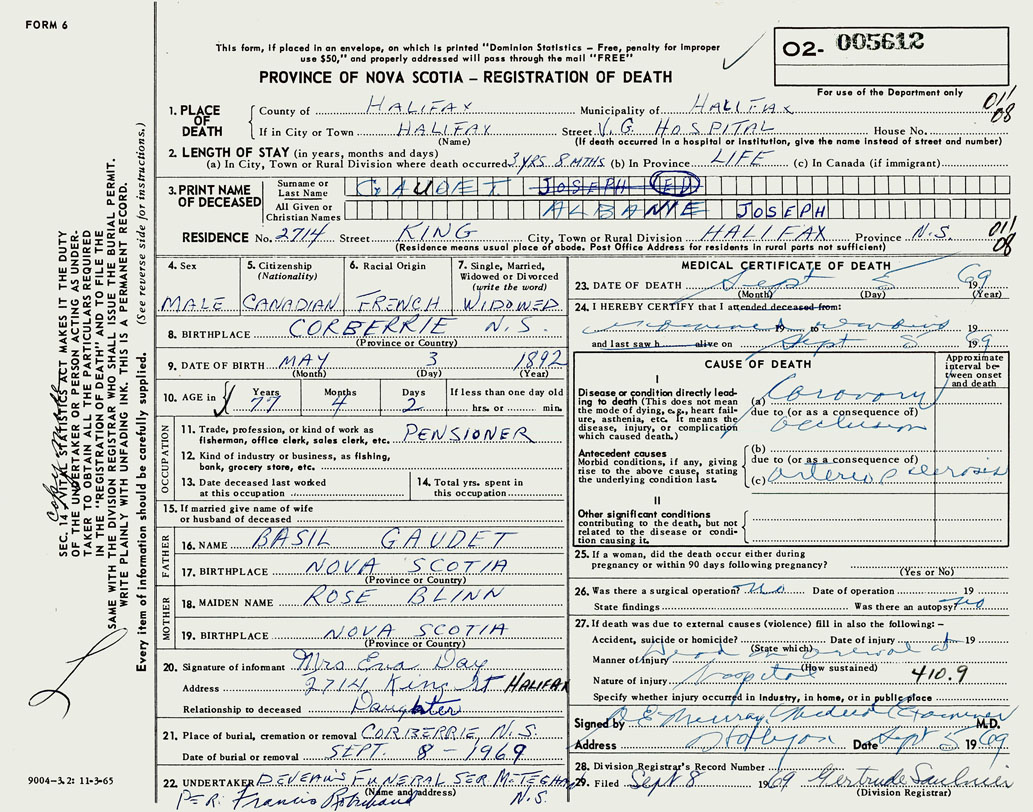 FORM 6
This form, if placed in an envelope, on which is printed "Dominion Statistics – Free, penalty for improper
use $50," and properly addressed will pass through the mail "FREE"
PROVINCE OF NOVA SCOTIA – REGISTRATION OF DEATH
O2- 005612
For use of the Department only
011/
08
1. PLACE OF DEATH
County of HALIFAX Municipality of HALIFAX
If in City or Town HALIFAX Street V. G. HOSPITAL House No.
(Name) (If death occurred in a hospital or institution, give the name instead of street and number)
2. LENGTH OF STAY (in years, months and days)
(a) In City, Town or Rural Division where death occurred 3 YRS 8 MTHS (b) In Province LIFE (c) In Canada (if immigrant)
3. PRINT NAME OF DECEASED
Surname or Last Name GAUDET JOSEPH ED
All Given or Christian Names ALBANIE JOSEPH
RESIDENCE No. 2714 Street KING City, Town or Rural Division HALIFAX Province N.S.
(Residence means usual place of abode. Post Office Address for residents in rural parts not sufficient)
011/
08
4. Sex
MALE
5. Citizenship (Nationality)
CANADIAN
6. Racial Origin
FRENCH
7. Single, Married, Widowed or Divorced (write the word)
WIDOWED
8. BIRTHPLACE CORBERRIE N.S.
(Province or Country)
9. DATE OF BIRTH MAY 3 1892
(Month) (Day) (Year)
10. AGE in Years 77 Months 4 Days 2 If less than one day old
hrs. or min.
OCCUPATION
11. Trade, profession, or kind of work as fisherman, office clerk, sales clerk, etc. PENSIONER
12. Kind of industry or business, as fishing, bank, grocery store, etc.
13. Date deceased last worked at this occupation
14. Total yrs. spent in this occupation
15. If married give name of wife or husband of deceased
FATHER
16. NAME BASIL GAUDET
17. BIRTHPLACE NOVA SCOTIA
(Province or Country)
MOTHER
18. MAIDEN NAME ROSE BLINN
19. BIRTHPLACE NOVA SCOTIA
(Province or Country)
20. Signature of informant Mrs Eva Day
Address 2714 King St HALIFAX
Relationship to deceased Daughter
21. Place of burial, cremation or removal CORBERRIE, N.S.
Date of burial or removal SEPT. 8 – 1969
22. UNDERTAKER DEVEAU'S FUNERAL SER. METEGHAN
(Name and address) N.S.
PER: Francis Robichaud
MEDICAL CERTIFICATE OF DEATH
23. DATE OF DEATH Sept 5 1969
(Month) (Day) (Year)
24. I HEREBY CERTIFY that I attended deceased from:
19 to 19
and last saw h alive on Sept 5 19 69
CAUSE OF DEATH
Approximate interval between onset and death
I
Disease or condition directly leading to death (This does not mean the mode of dying, e.g., heart failure, asthenia, etc. it means the disease, injury, or complication which caused death.)
(a) Coronary
due to (or as a consequence of)
occlusion
Antecedent causes
Morbid conditions, if any, giving rise to the above cause, stating the underlying condition last.
(b)
due to (or as a consequence of)
(c) arterio sclerosis
II
Other significant conditions
contributing to the death, but not related to the disease or condition causing it.
25. If a woman, did the death occur either during
pregnancy or within 90 days following pregnancy?
(Yes or No)
26. Was there a surgical operation? no Date of operation 19
State findings Was there an autopsy? no
27. If death was due to external causes (violence) fill in also the following: –
Accident, suicide or homicide? Date of injury 19
(State which)
Manner of injury Dead on arrival at
(How sustained)
Nature of injury hospital 410.9
Specify whether injury occurred in industry, in home, or in public place
Signed by Murray Medical Examiner M.D.
Address Date Sept 5 1969
28. Division Registrar's Record Number
29. Filed Sept 8 1969 Gertrude Saulnier
(Division Registrar)
SEC. 14 VITAL STATISTICS ACT MAKES IT THE DUTY
OF THE UNDERTAKER OR PERSON ACTING AS UNDER-
TAKER TO OBTAIN ALL THE PARTICULARS REQUIRED
IN THE "REGISTRATION OF DEATH" AND TO FILE THE
SAME WITH THE DIVISION REGISTRAR WHO SHALL ISSUE THE BURIAL PERMIT.
WRITE PLAINLY WITH UNFADING INK. THIS IS A PERMANENT RECORD.
Every item of information should be carefully supplied. (See reverse side for instructions.)
9004-3.2: 11-3-65